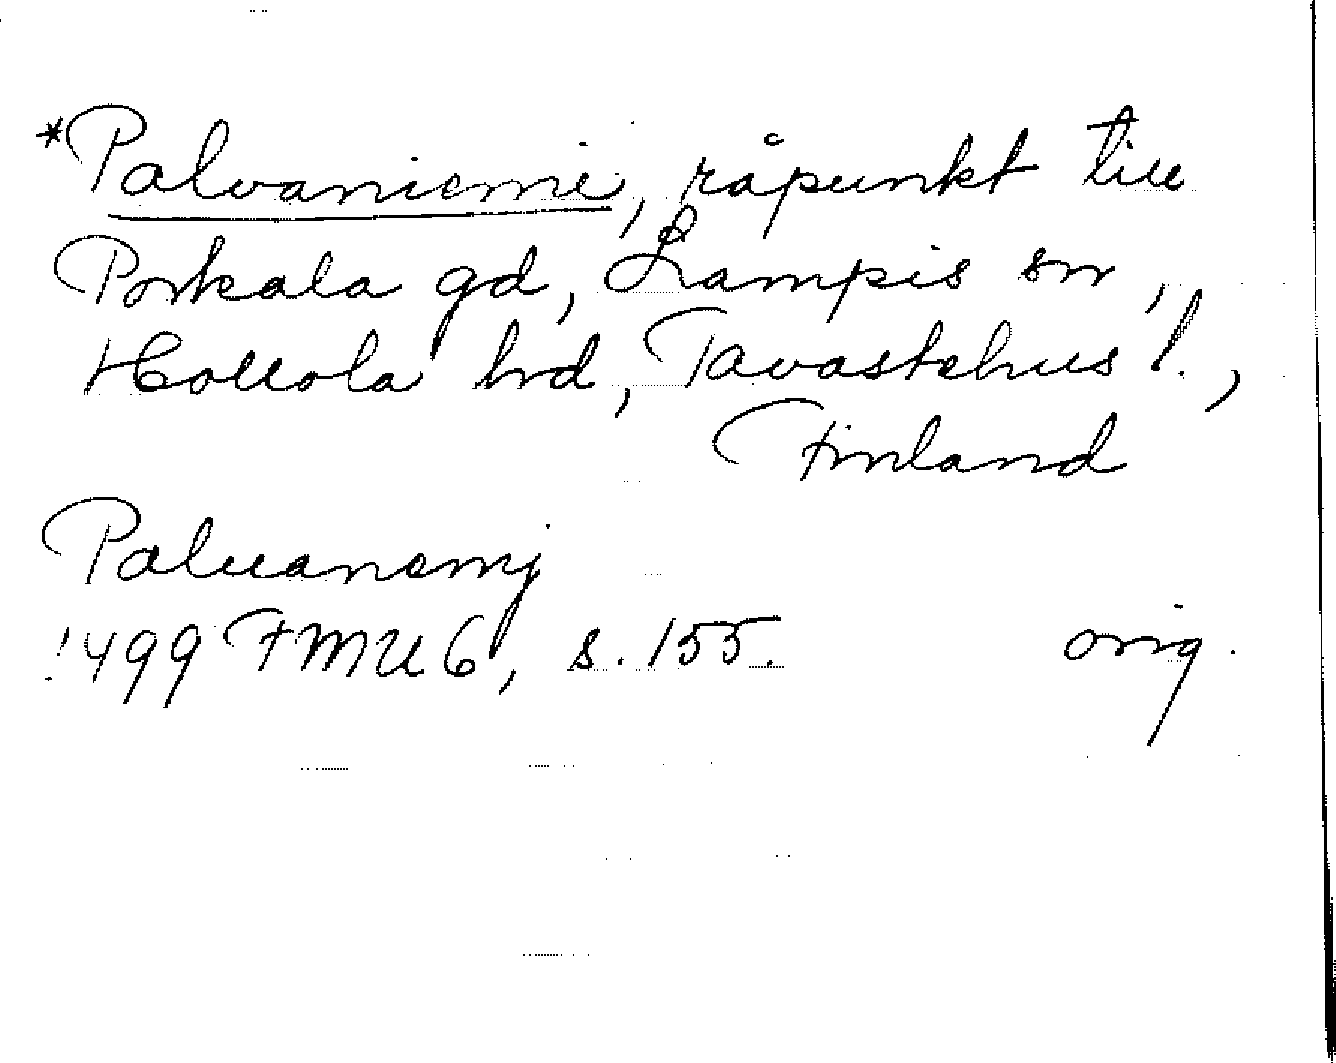 *Palvaniemi, råpunkt till
Porkala gd, Lampis sn,
Hollola hrd, Tavastehus l.,
Finland
Paluanemj
1499 FMU 6, s. 155.
orig.